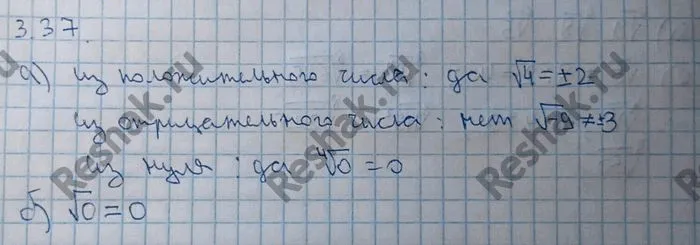 3.37.
а) из положительного числа: да √4 = ±2
из отрицательного числа: нет √-9 ≠ ±3
из нуля: да ⁴√0 = 0
б) √0 = 0
Reshak.ru
Reshak.ru
Reshak.ru